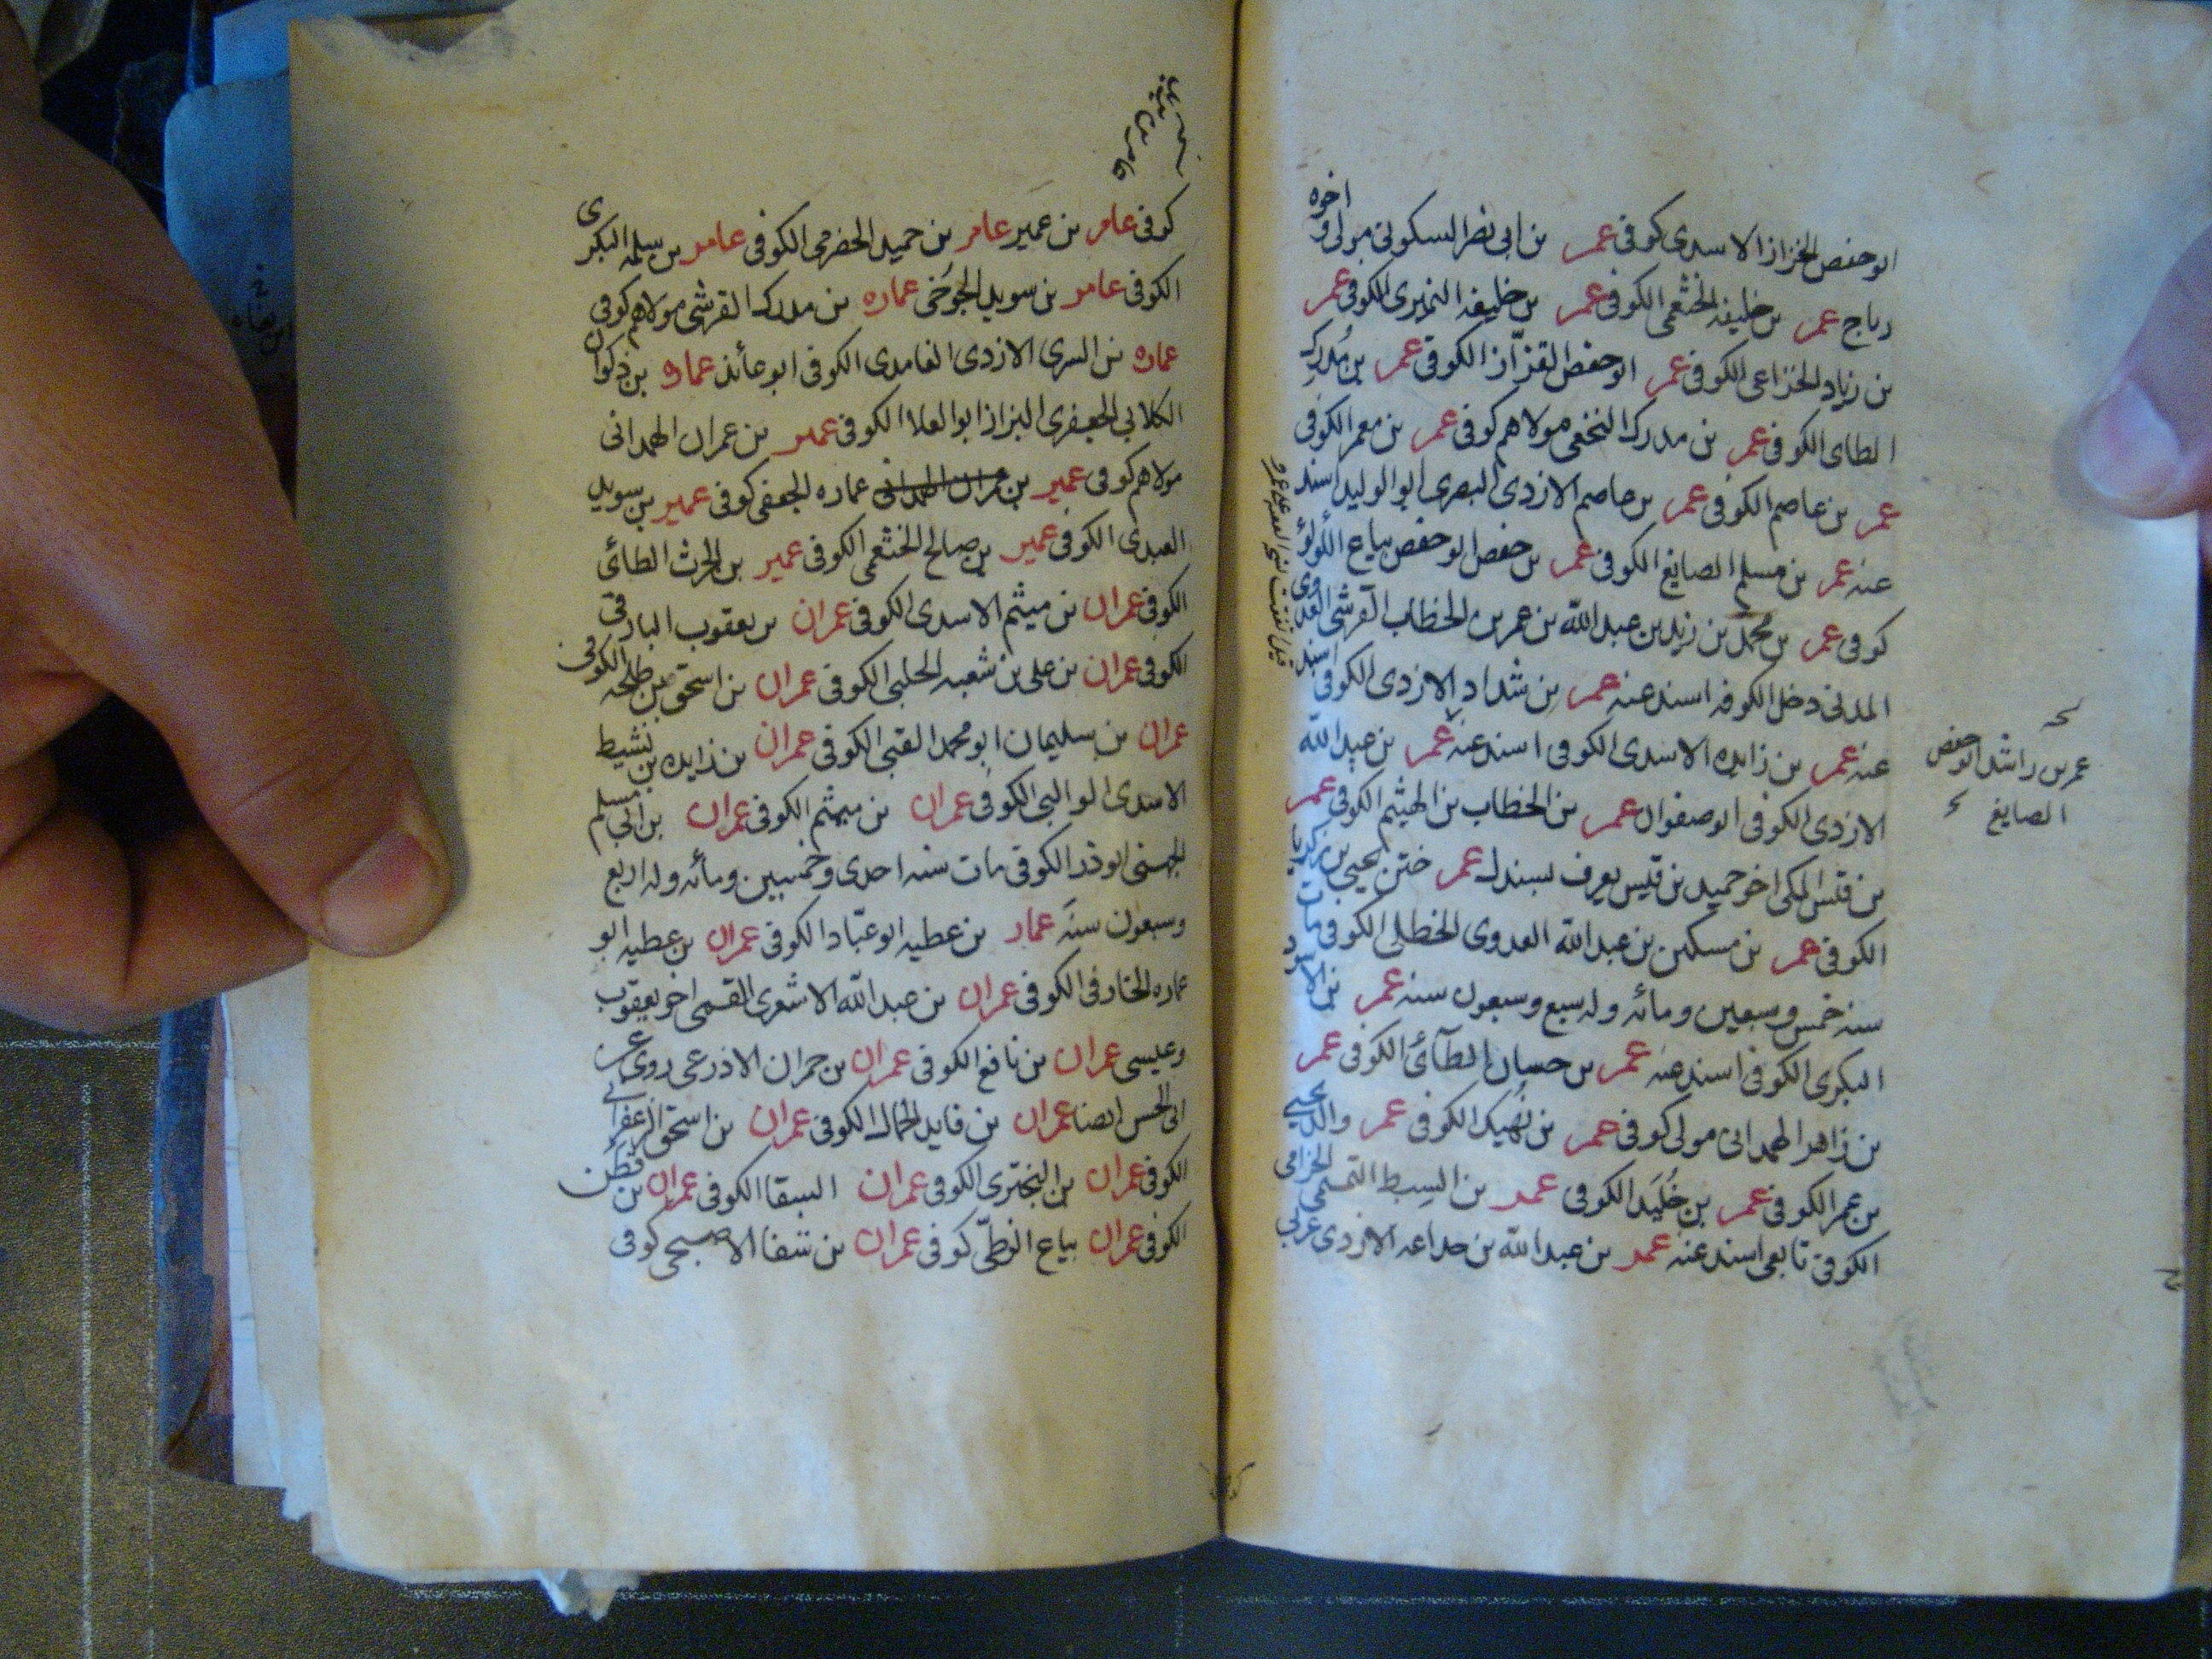 ابو حفص الخزاز الاسدى كوفى عمر بن ابى نصر السكونى مولى و اخوه
رباح عمر بن خليفه الخثعمى الكوفى عمر بن خليفه النميرى الكوفى عمر
بن زياد الخزاعى الكوفى عمر ابو حفص القزّاز الكوفى عمر بن مُدرك
الطاى الكوفى عمر بن مدرك النخعى مولاهم كوفى عمر بن معمر الكوفى
عمر بن عاصم الكوفى عمر بن عاصم الازدى البصرى ابو الوليد اسند
عنه عمر بن مسلم الصايغ الكوفى عمر بن حفص ابو حفص بياع اللؤلؤ
كوفى عمر بن محمد بن زيد بن عبد الله بن عمر بن الخطاب القرشى العدوى
المدنى دخل الكوفه اسند عنه عمر بن شداد الازدى الكوفى اسند
عنه عمر بن زايده الاسدى الكوفى اسند عنه عمر بن عبد الله
الازدى الكوفى ابو صفوان عمر بن الخطاب بن الهيثم الكوفى عمر
بن قيس المكى اخو حميد بن قيس يعرف بسندل عمر ختن يحيى بن زكريا
الكوفى عمر بن مسكين بن عبد الله العدوى الخطلى الكوفى مات
سنه خمس وسبعين ومائه وله سبع وسبعون سنه عمر بن الاسود
البكرى الكوفى اسند عنه عمر بن حسان الطآئى الكوفى عمر
بن زاهر الهمدانى مولى كوفى عمر بن نُهيك الكوفى عمر والد يحيى
بن عمر الكوفى عمر بن خُلَيد الكوفى عمر بن السبط التميمى الخزامى
الكوفى تابعى اسند عنه عمر بن عبد الله بن حداعه الازدى عربى
عمر بن راشد ابو حفص
الصايغ
كوفى عامر بن عمير عامر بن حميد الحضرمى الكوفى عامر بن سلمه البكرى
الكوفى عامر بن سويد الجوخى عماره بن مدرك القرشى مولاهم كوفى
عماره بن السرى الازدى الغامدى الكوفى ابو عائذ عماره بن ذكوان
الكلابى الجعفرى البزاز ابو العلا الكوفى عمير بن عمران الهمدانى
مولاهم كوفى عمير بن عمران الهمدانى عماره الجعفى كوفى عمير بن سويد
العبدى الكوفى عمير بن صالح الخثعمى الكوفى عمير بن الحرث الطائى
الكوفى عمران بن ميثم الاسدى الكوفى عمران بن يعقوب البارقى
الكوفى عمران بن على بن شعبه الحلبى الكوفى عمران بن اسحق بن طلحه الكوفى
عمران بن سليمان ابو محمد القبى الكوفى عمران بن زايده بن نشيط
الاسدى الوالبى الكوفى عمران بن ميثم الكوفى عمران بن ابى مسلم
الجهنى ابو ذر الكوفى مات سنه احدى وخمسين ومائه وله اربع
وسبعون سنه عمار بن عطيه ابو عبّاد الكوفى عمران بن عطيه ابو
عماره الخارفى الكوفى عمران بن عبد الله الاشعرى القمى اخو يعقوب
وعيسى عمران بن نافع الكوفى عمران بن حمران الاذرعى روى عن
ابى الحسن ايضا عمران بن فايد الحمال الكوفى عمران بن اسحق الزعفرانى
الكوفى عمران بن البخترى الكوفى عمران السقا الكوفى عمران بن قطن
الكوفى عمران بياع الزطّى كوفى عمران بن شفا الاصبحى كوفى